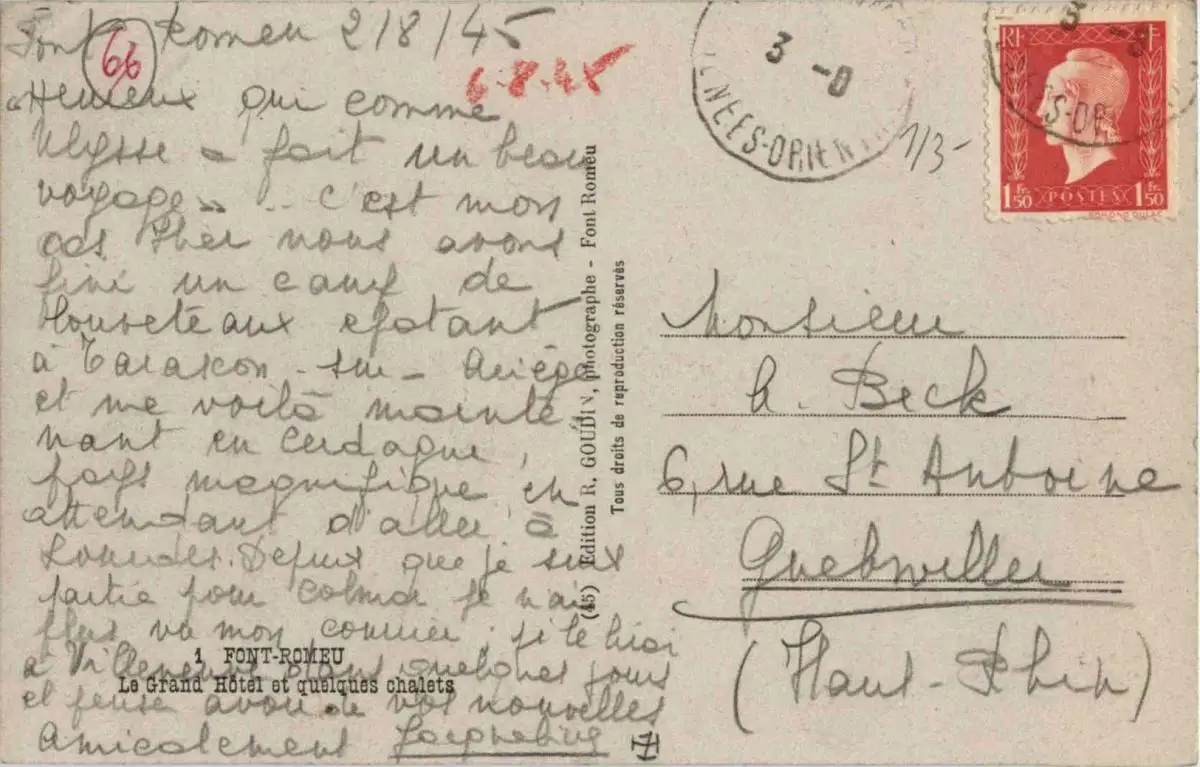 Font Romeu 2/8/45
66
6-8-45
"Heureux qui comme
Ulysse a fait un beau
voyage".. .. c'est mon
cas Cher nous avons
fini un camp de
louveteaux épatant
à Tarascon-sur-Ariège
et me voilà mainte
nant en Cerdagne,
pays magnifique, en
attendant d'aller à
Lourdes. Depuis que je suis
partie pour Colmar je n'ai
plus vu mon courrier; je le lirai
à dans quelques jours
et pense avoir de vos nouvelles
Amicalement Jacqueline
1 FONT-ROMEU
Le Grand Hôtel et quelques chalets
(45) Edition R. GOUDIN, photographe - Font Romeu
Tous droits de reproduction réservés
3 -8
NEES-ORIENT
1/3-
3 -8
ES-OR
RF
1 Fr. 50 POSTES 1 Fr. 50
EDMOND DULAC
Monsieur
A. Beck
6, rue St Antoine
Guebwiller
(Haut-Rhin)